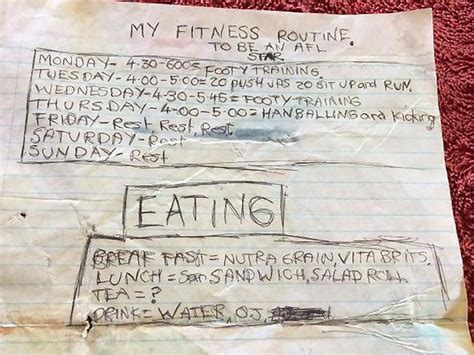 MY FITNESS ROUTINE.
TO BE AN AFL
STAR
MONDAY- 4-30-600= FOOTY TRAINING.
TUESDAY- 4-00-5:00= 20 PUSH UPS 20 SIT UP and RUN.
WEDNESDAY-4-30-5-45= FOOTY TRAINING
THURSDAY- 4-00-5:00= HANBALLING and Kicking
FRIDAY- Rest, Rest, Rest
SATURDAY- Rest
SUNDAY- Rest
EATING
BREAK FAST= NUTRA GRAIN, VITA BRITS,
LUNCH= SANDWICH, SALAD ROLL
TEA=?
DRINK= WATER, OJ,